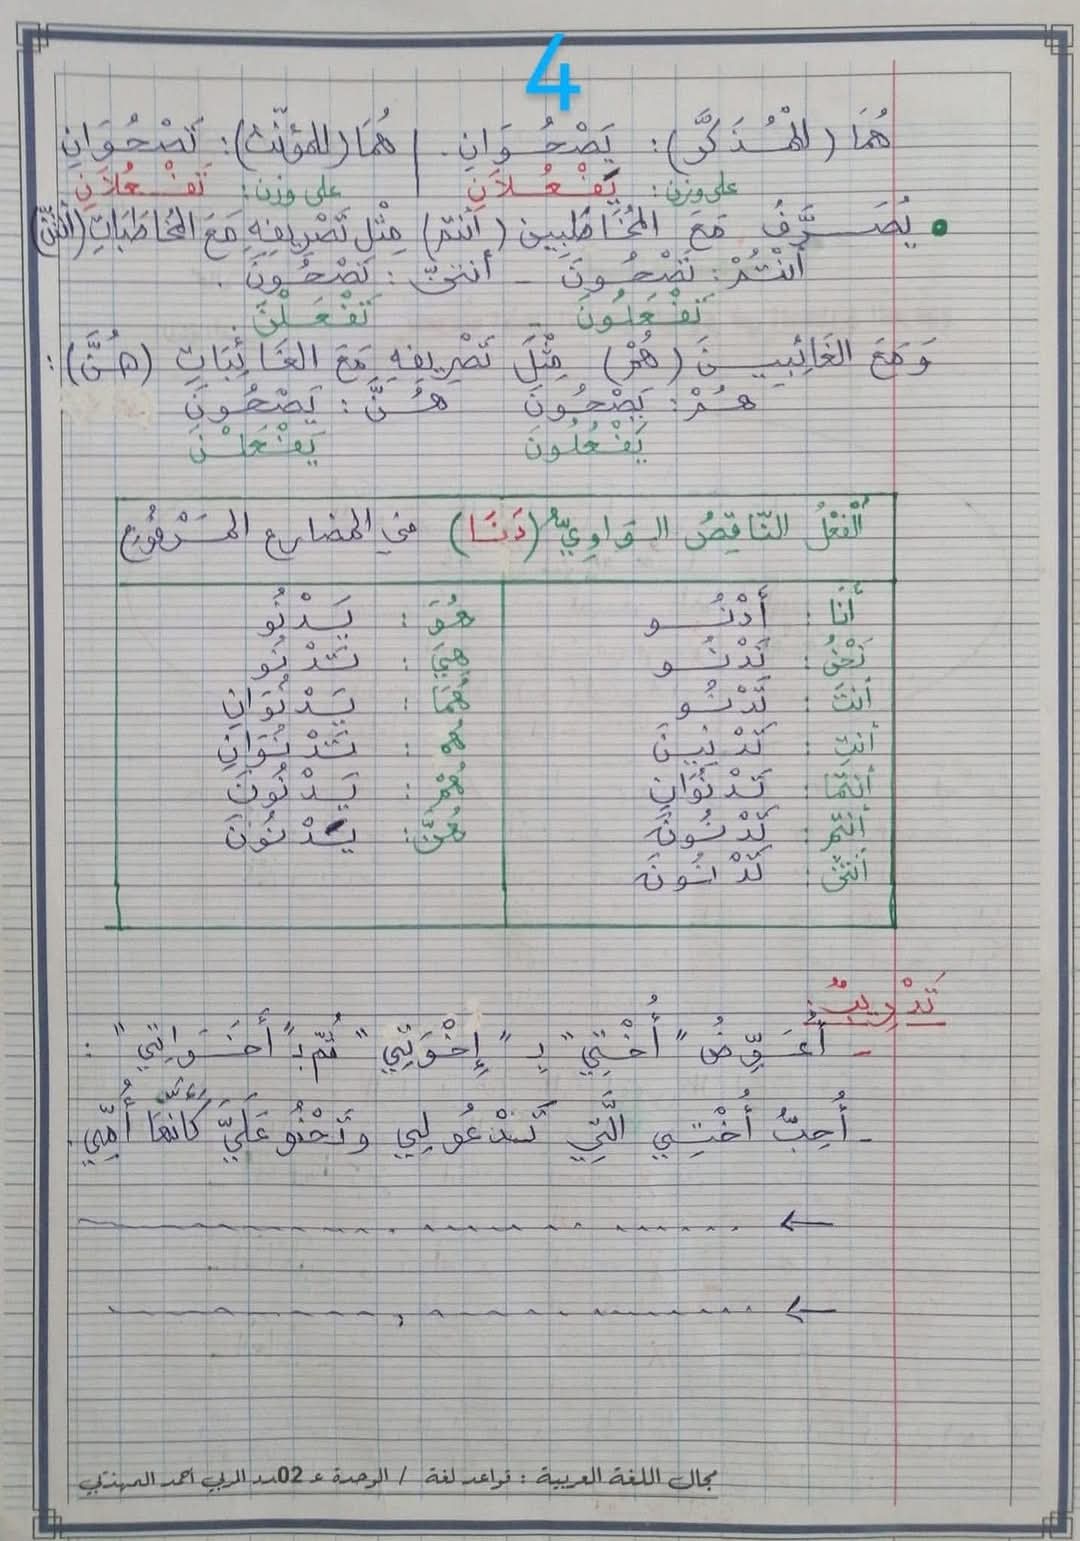 4
هُمَا (المُذَكَّر): يَصْحُوَانِ. | هُمَا (المؤنّث): تَصْحُوَانِ
على وزن: يَفْعُلَانِ على وزن: تَفْعُلَانِ
• يُصَرَّفُ مَعَ المُخَاطَبِينَ (أَنْتُمْ) مِثْلَ تَصْرِيفِهِ مَعَ المُخَاطَبَاتِ (أَنْتُنَّ)
أَنْتُمْ: تَصْحُونَ - أنتنّ: تَصْحُونَ.
تَفْعَلُونَ - تَفْعَلْنَ
وَمَعَ الغَائِبِينَ (هُمْ) مِثْلَ تَصْرِيفِهِ مَعَ الغَائِبَاتِ (هُنَّ):
هُمْ: يَصْحُونَ هُنَّ: يَصْحُونَ
يَفْعُلُونَ يَفْعَلْنَ
الْفِعْلُ النَّاقِصُ الوَاوِيُّ (دَنَا) في المضارع المَرْفُوعِ
أَنَا : أَدْنُو هُوَ : يَدْنُو
نَحْنُ : نَدْنُو هِيَ : تَدْنُو
أَنْتَ : تَدْنُو هُمَا : يَدْنُوَانِ
أَنْتِ : تَدْنِينَ هما : تَدْنُوَانِ
أَنْتُمَا : تَدْنُوَانِ هُمْ : يَدْنُونَ
أَنْتُمْ : تَدْنُونَ هُنَّ : يَدْنُونَ
أَنْتُنَّ : تَدْنُونَ
تَدْرِيبٌ:
- أُعَوِّضُ "أُخْتِي" بِـ "إِخْوَتِي" ثُمَّ بـ "أَخَوَاتِي" :
- أُحِبُّ أُخْتِي الَّتِي تَدْعُو لِي وتَحْنُو عَلَيَّ كَأَنَّهَا أُمِّي.
←
←
مجال اللغة العربية : قواعد لغة / الوحدة عـ02ـدد المربي أحمد المهذبي